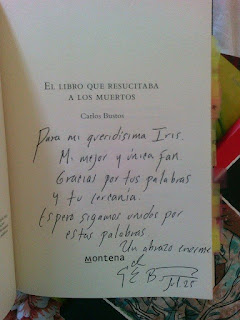 EL LIBRO QUE RESUCITABA
A LOS MUERTOS
Carlos Bustos
Para mi queridísima Iris.
Mi mejor y única fan.
Gracias por tus palabras
y tu cercanía.
Espero sigamos unidos por
estas palabras
Un abrazo enorme
montena